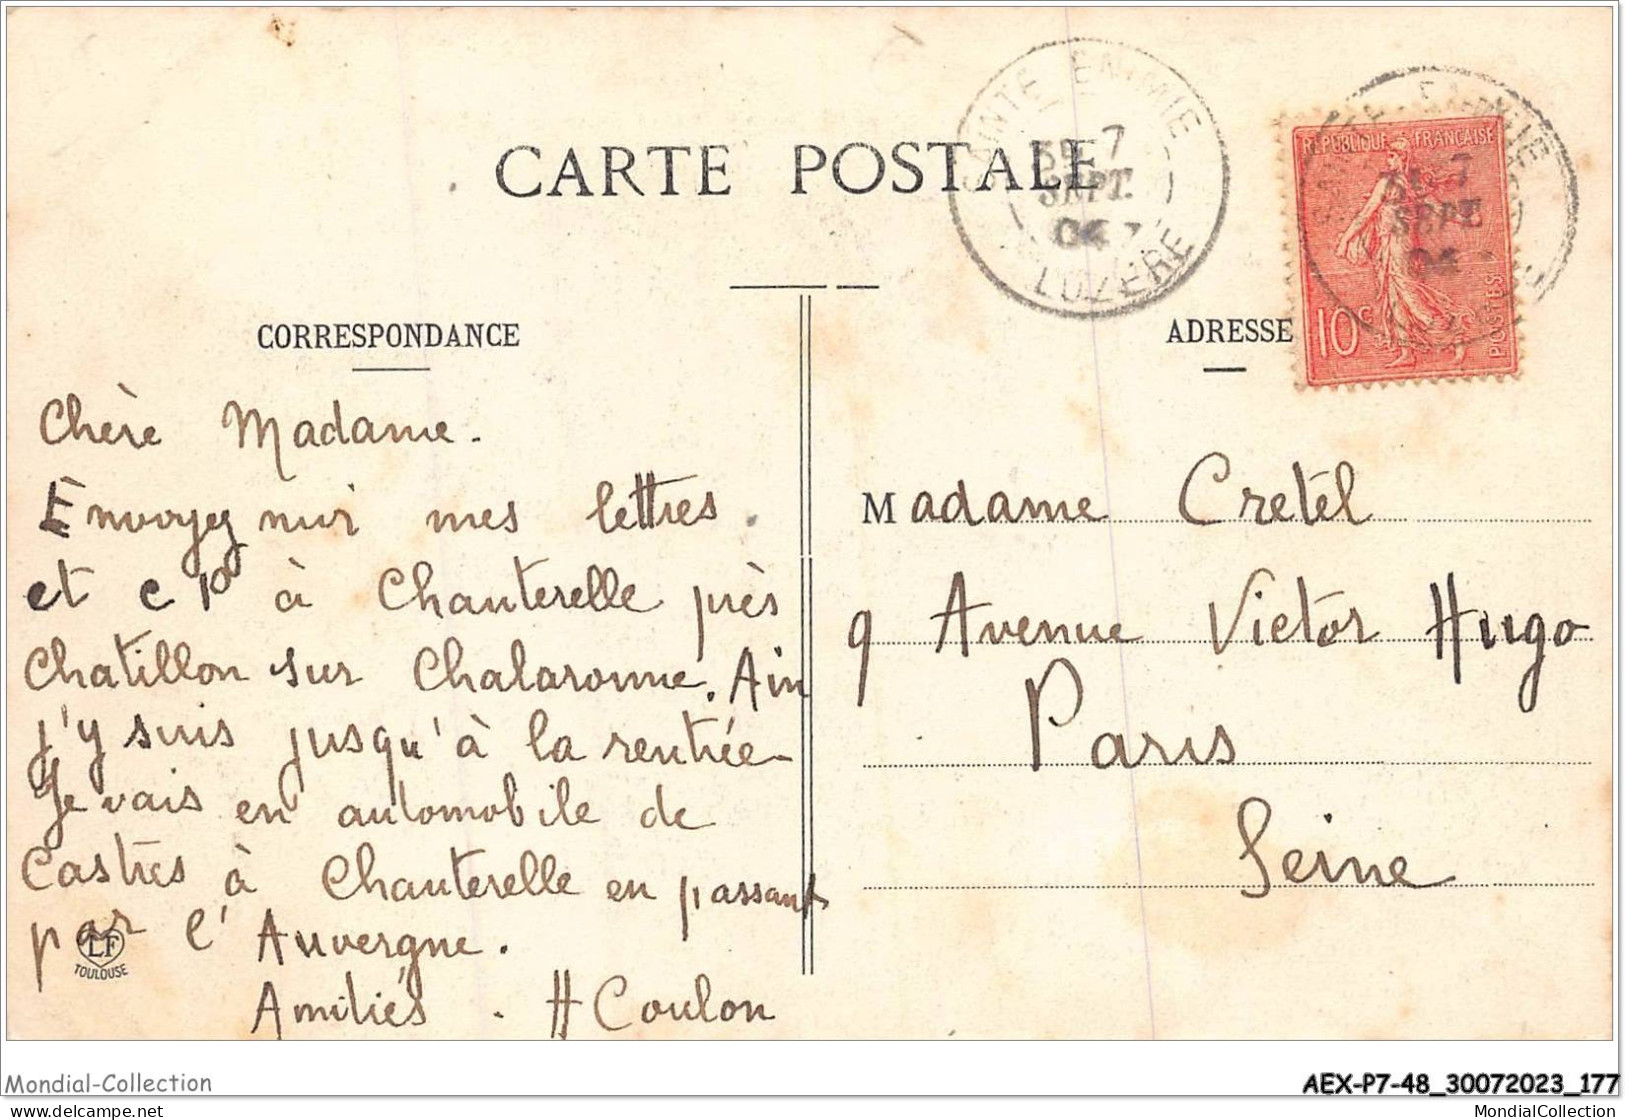 CARTE POSTALE
SAINTE ENIMIE
7
SEPT.
04
LOZÈRE
RÉPUBLIQUE FRANÇAISE
10c
POSTES
7
SEPT
04
CORRESPONDANCE
Chère Madame.
Envoyez moi mes lettres
et à Chanterelle près
Chatillon sur Chalaronne. Ain
j'y suis jusqu'à la rentrée
Je vais en automobile de
Castres à Chanterelle en passant
par l'Auvergne.
Amitiés. H Coulon
LF
TOULOUSE
ADRESSE
Madame Cretel
9 Avenue Victor Hugo
Paris
Seine
Mondial-Collection
AEX-P7-48_30072023_177
www.delcampe.net
MondialCollection